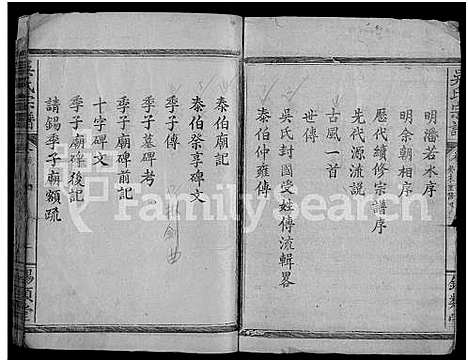 明潘若水序
明佘朝相序
歷代續修宗譜序
先代源流說
古風一首
世傳
吳氏封國受姓傳流輯畧
泰伯仲雍傳
泰伯廟記
泰伯祭享碑文
季子傳
季子墓碑考
季子廟碑前記
十字碑文
季子廟碑後記
請錫季子廟額疏
吳氏宗譜
FamilySearch